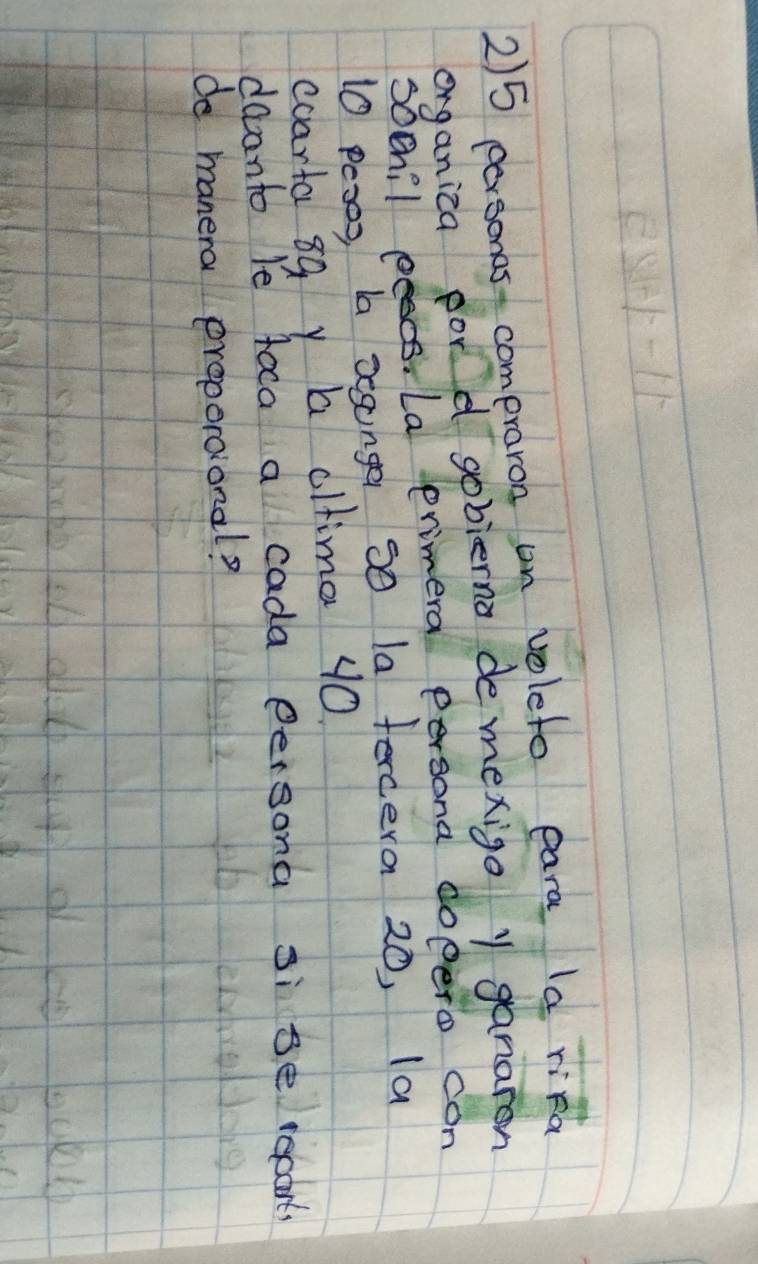 2) 5 personas compraron un voleto para la rifa
organiza por el gobierno de mexigo y ganaron
50 mil pesos. La primera persona copero con
10 pesos, la segunga 50 la tercera 20, la
cuarta 80 y la ultima 40
cuanto le toca a cada persona si se reparte
de manera proporcional?